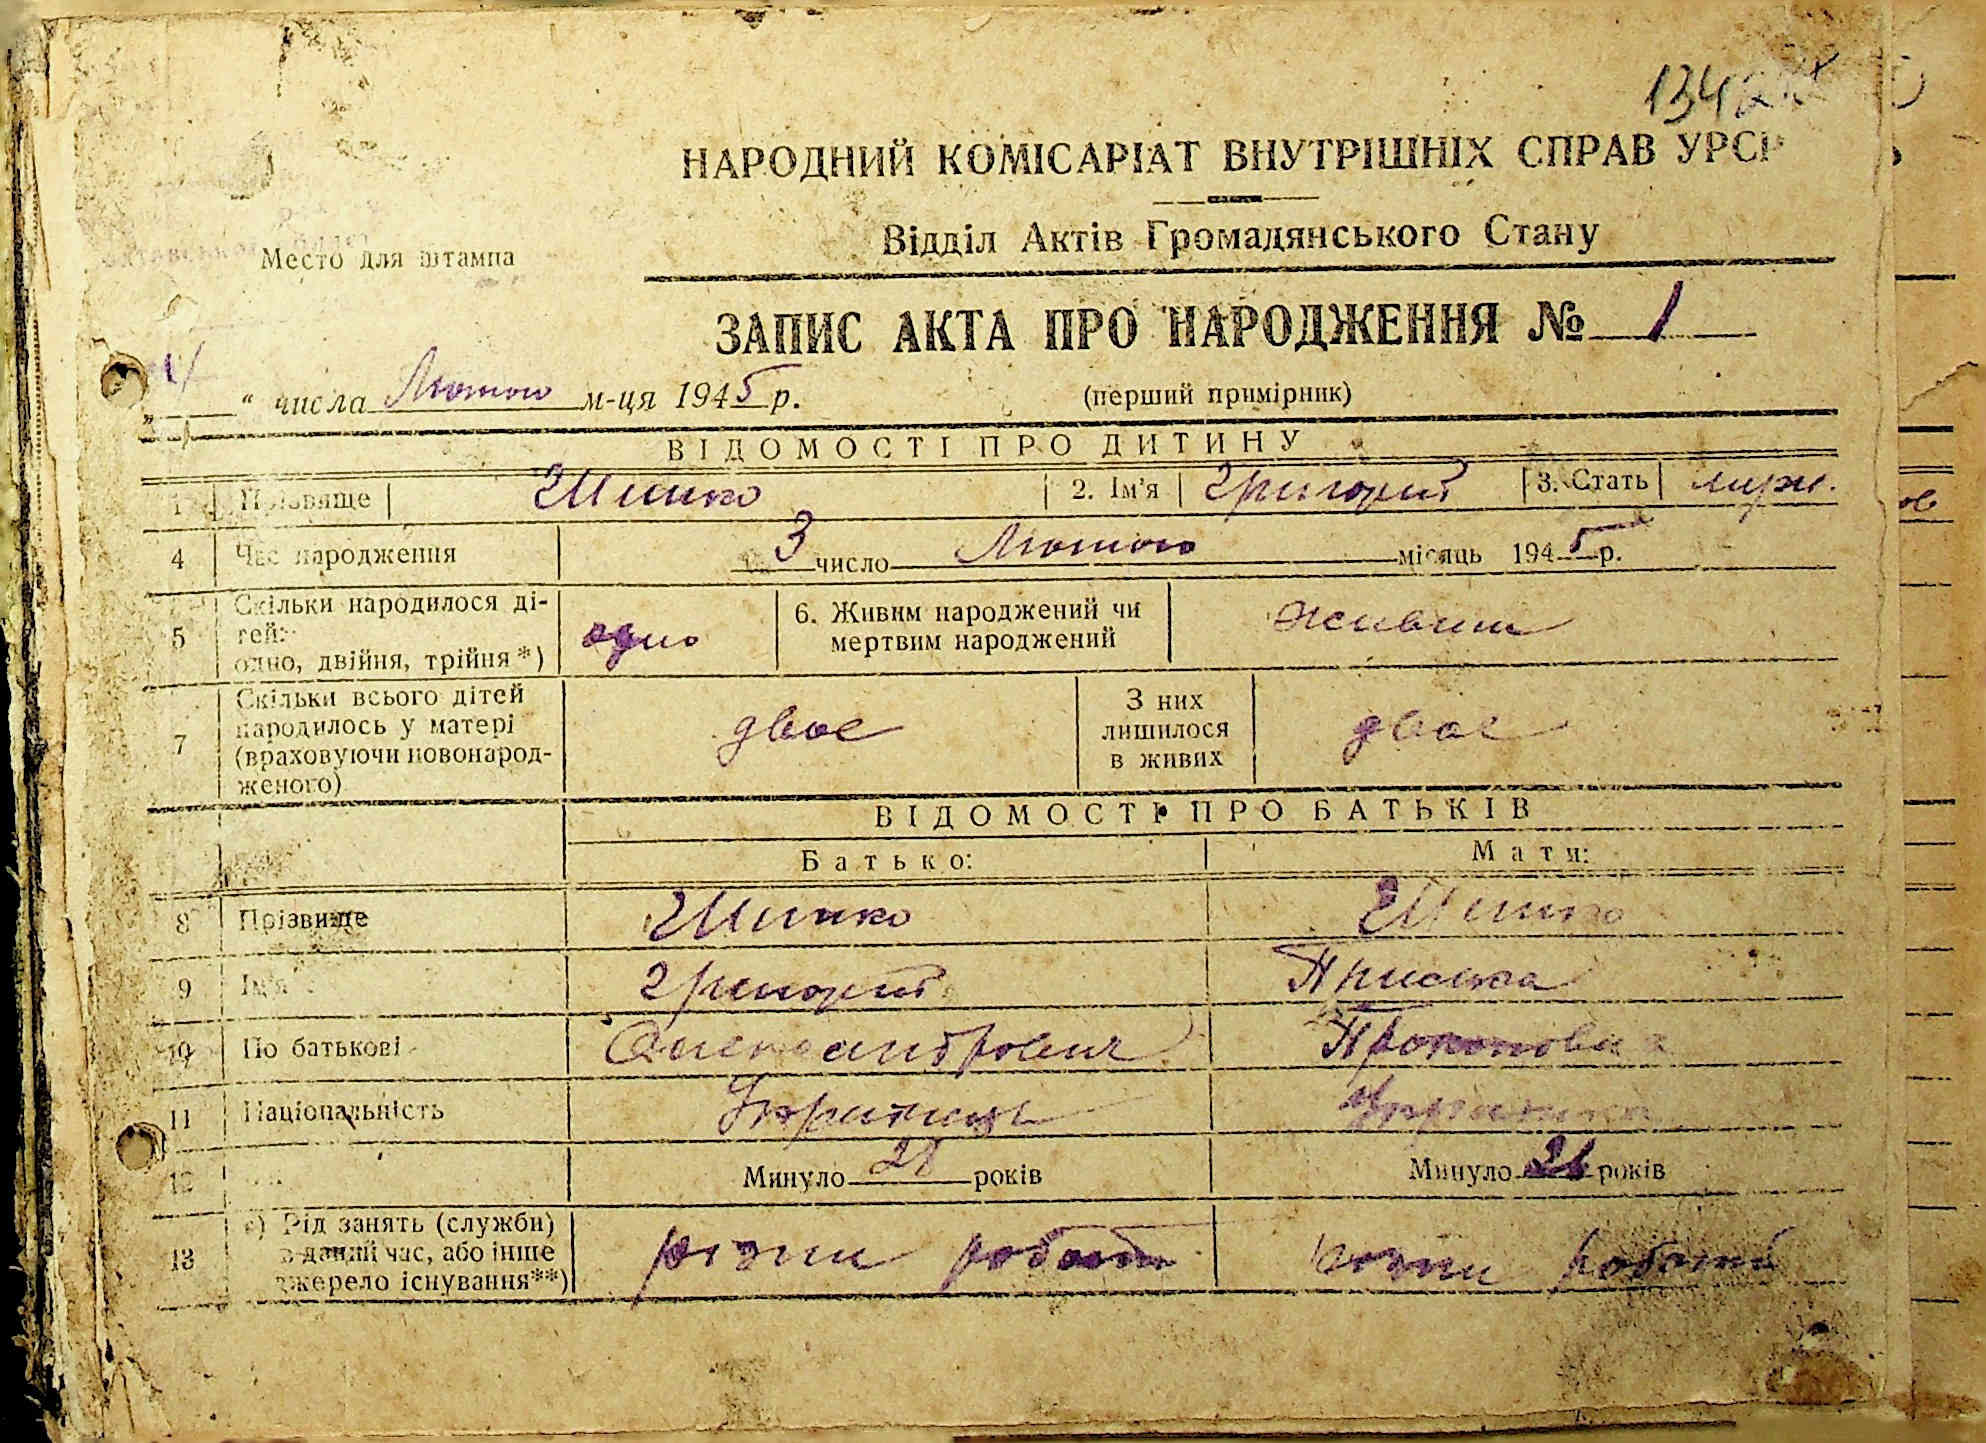 134
НАРОДНИЙ КОМІСАРІАТ ВНУТРІШНІХ СПРАВ УРСР
Відділ Актів Громадянського Стану
Место для штампа
ЗАПИС АКТА ПРО НАРОДЖЕННЯ № 1
„ 4 “ числа Лютого м-ця 1945 р.
(перший примірник)
ВІДОМОСТІ ПРО ДИТИНУ
1 Прізвище Шинко 2. Ім'я Григорий 3. Стать муж.
4 Час народження 3 число Лютого місяць 1945 р.
5 Скільки народилося ді-
тей:
одно, двійня, трійня*) одно 6. Живим народжений чи
мертвим народжений живим
7 Скільки всього дітей
народилось у матері
(враховуючи новонарод-
женого) двоє З них
лишилося
в живих двоє
ВІДОМОСТІ ПРО БАТЬКІВ
Батько: Мати:
8 Прізвище Шинко Шинко
9 Ім'я Григорий Приська
10 По батькові Олександрович Прокоповна
11 Національність Українець Українка
12 Минуло 28 років Минуло років
13 а) Рід занять (служби)
в даний час, або інше
джерело існування**) різни роботи різни роботи